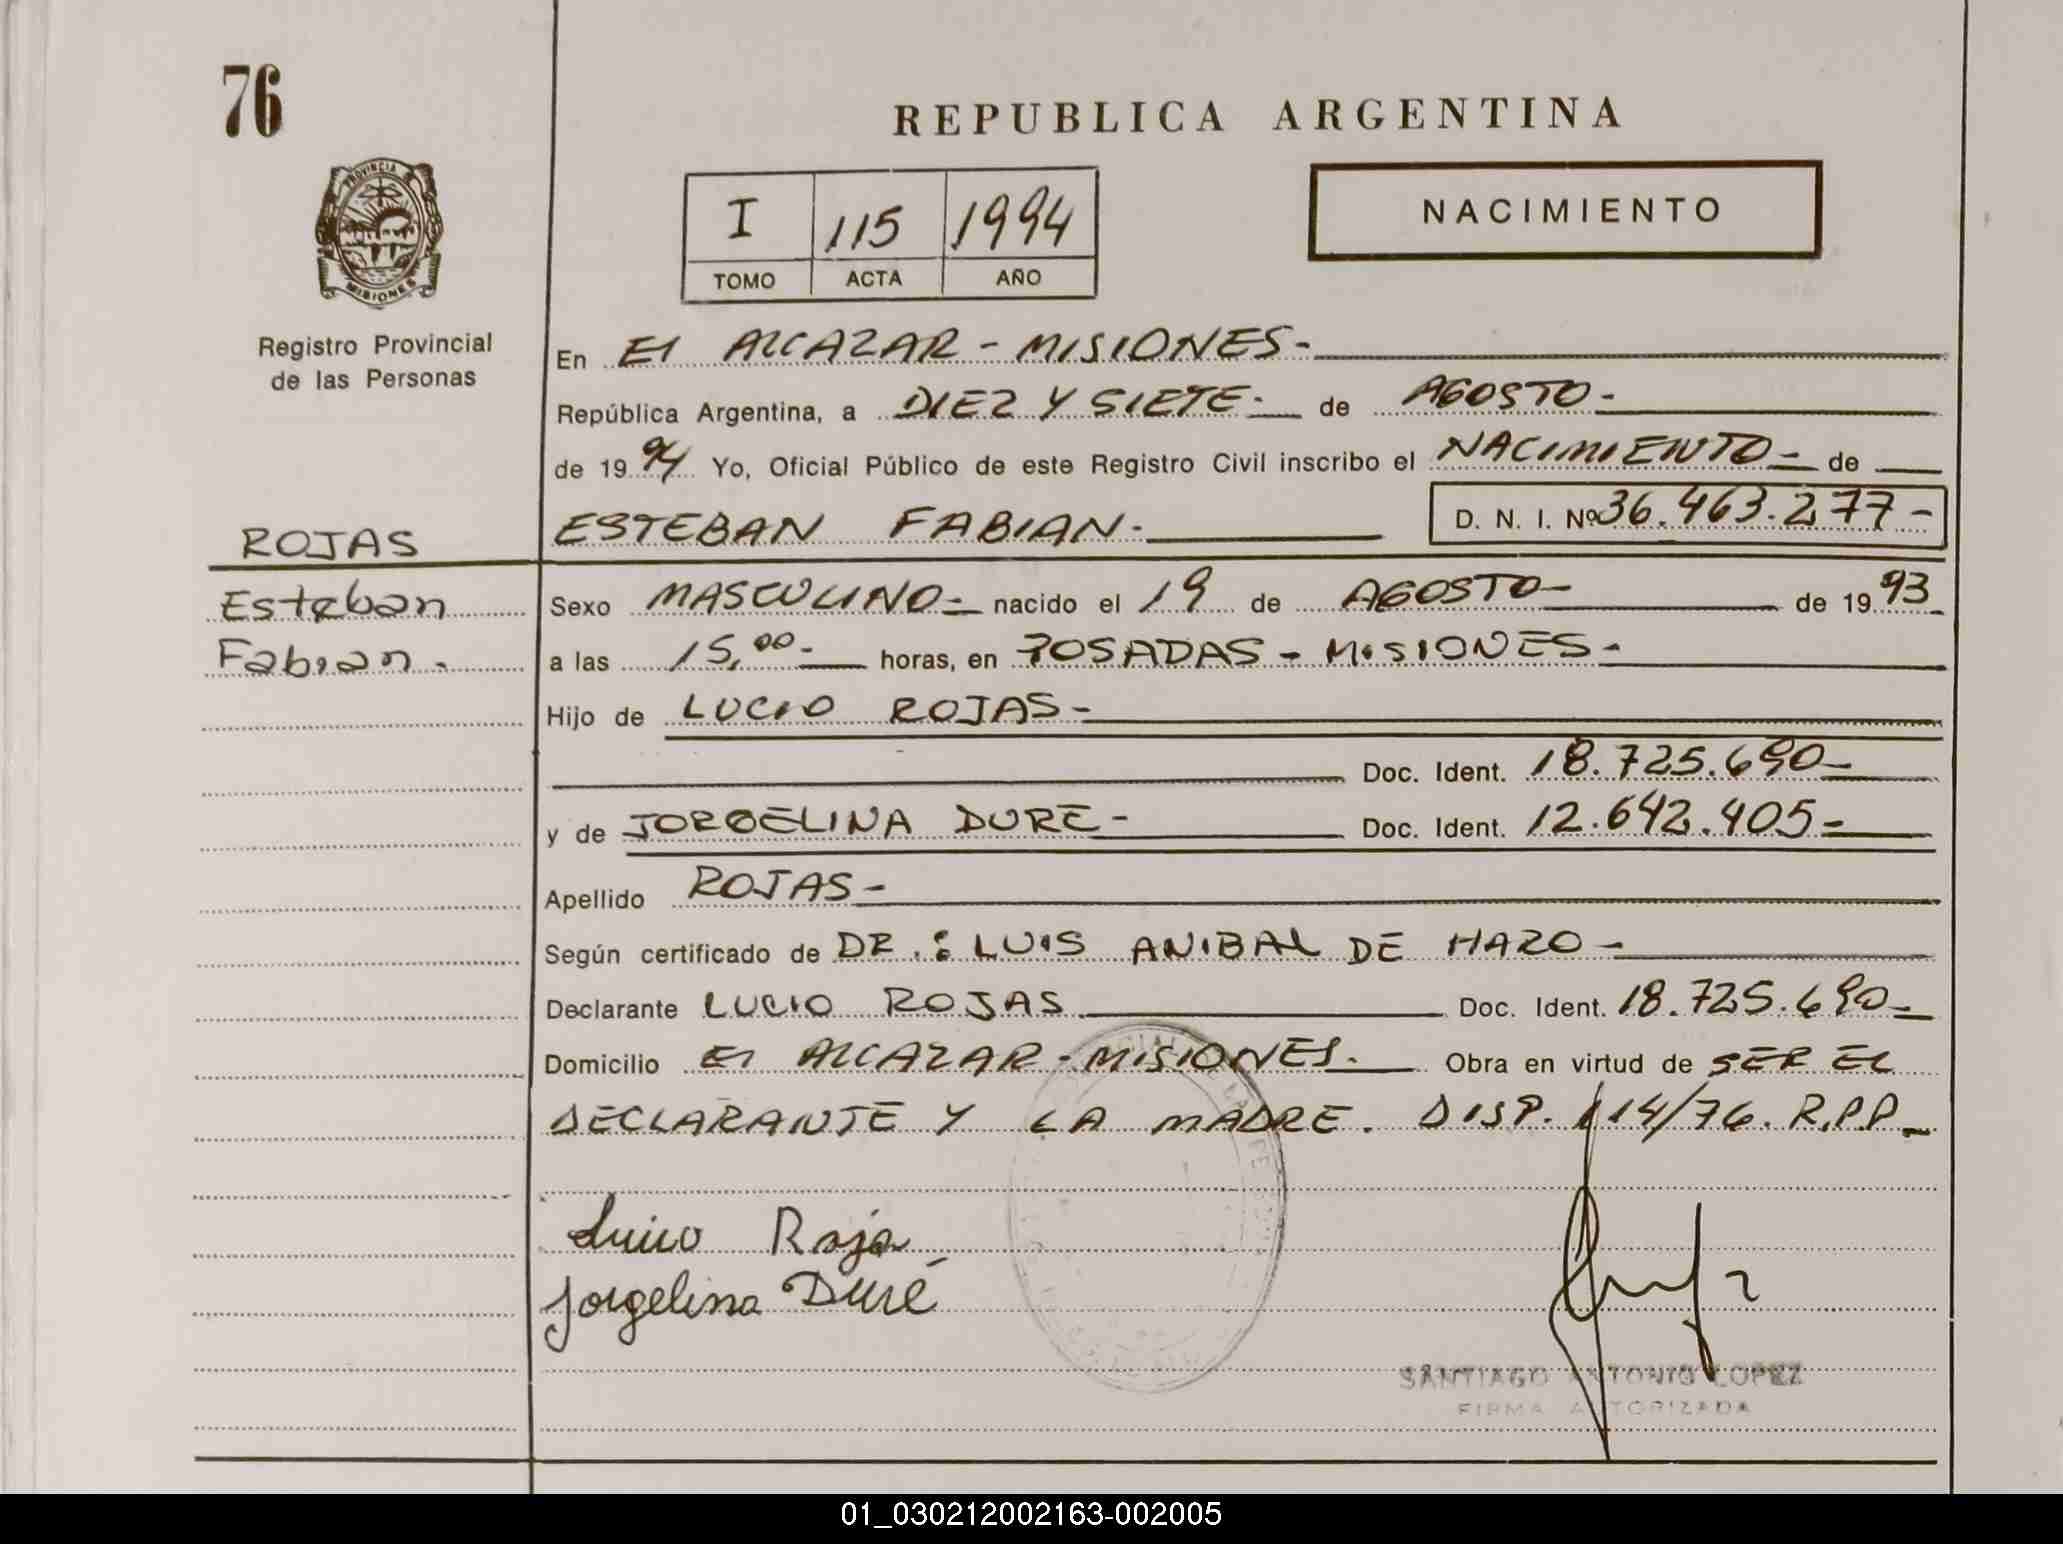 76
REPUBLICA ARGENTINA
PROVINCIA DE
MISIONES
Registro Provincial
de las Personas
I 115 1994
TOMO ACTA AÑO
NACIMIENTO
En El ALCAZAR - MISIONES -
República Argentina, a DIEZ Y SIETE - de AGOSTO -
de 1994 Yo, Oficial Público de este Registro Civil inscribo el NACIMIENTO - de
ESTEBAN FABIAN - D. N. I. Nº 36.463.277 -
ROJAS
Esteban
Fabian.
Sexo MASCULINO - nacido el 19 de AGOSTO - de 1993
a las 15,00 - horas, en POSADAS - MISIONES -
Hijo de LUCIO ROJAS -
Doc. Ident. 18.725.690 -
y de JORGELINA DURE - Doc. Ident. 12.642.405 -
Apellido ROJAS -
Según certificado de DR.: LUIS ANIBAL DE HARO -
Declarante LUCIO ROJAS Doc. Ident. 18.725.690 -
Domicilio El ALCAZAR - MISIONES. Obra en virtud de SER EL
DECLARANTE Y LA MADRE. DISP. 114/76. R.P.P.
Lucio Roja
Jorgelina Duré
SANTIAGO ANTONIO LOPEZ
FIRMA AUTORIZADA
01_030212002163-002005